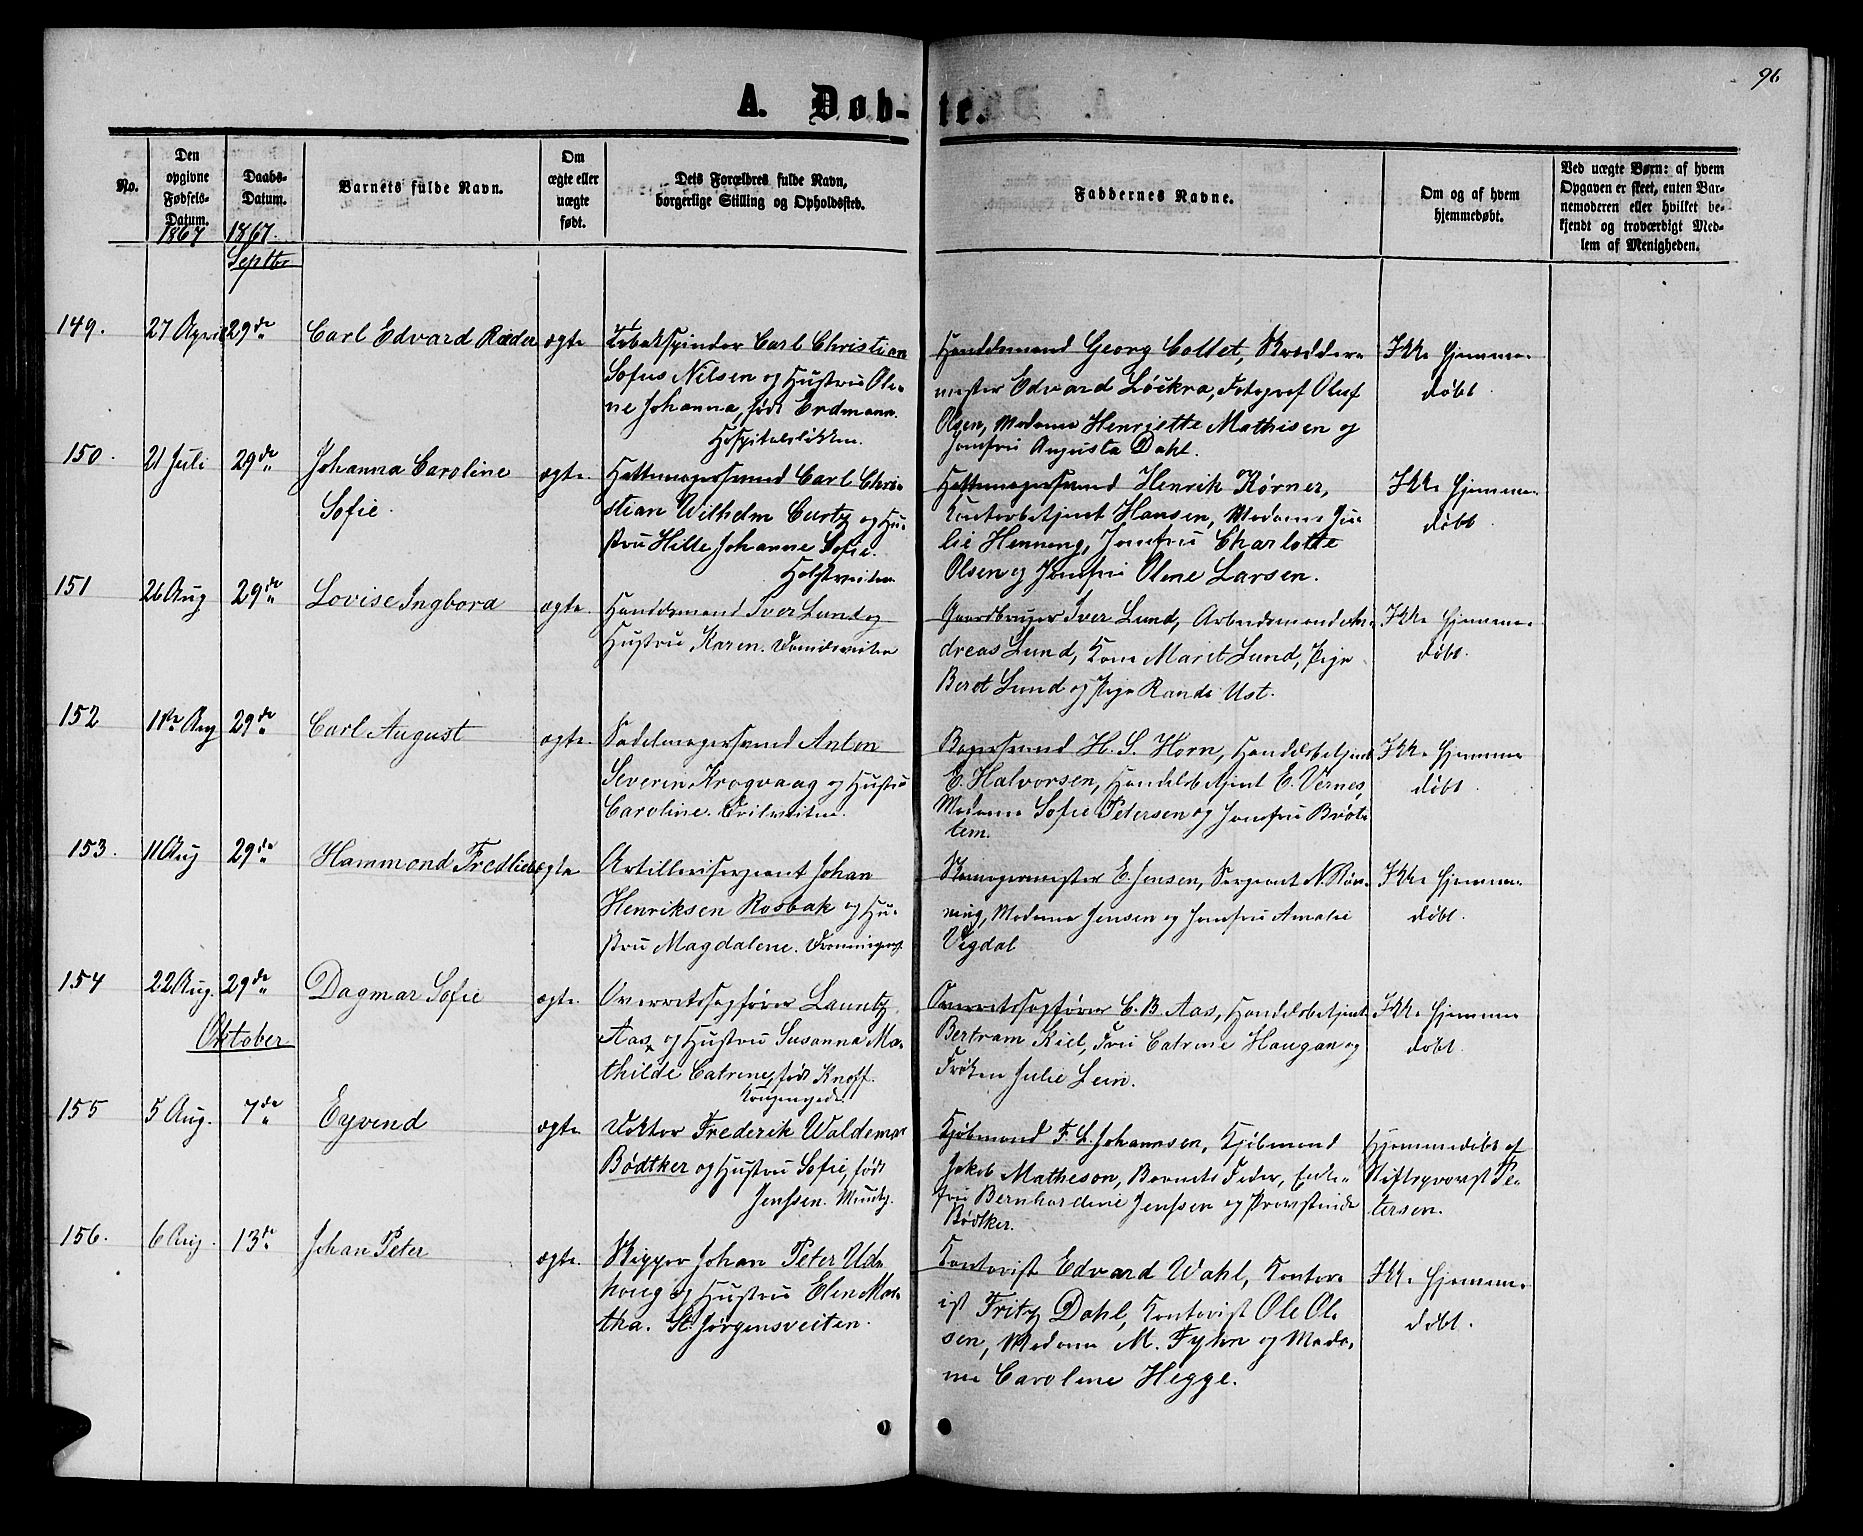 96
A. Døb-te.
No.
Den opgivne Fødsels-Datum.
Daabs-Datum.
Barnets fulde Navn.
Om ægte eller uægte født.
Dets Forældres fulde Navn, borgerlige Stilling og Opholdssted.
Faddernes Navne.
Om og af hvem hjemmedøbt.
Ved uægte Børn: af hvem Opgaven er skeet, enten Barnemoderen eller hvilket bekjendt og troværdigt Medlem af Menigheden.
1867 1867.
Septbr
149. 27 April 29de Carl Edvard Ræder ægte Tobakspinder Carl Christian
Sofus Nilsen og Hustru Ole-
ne Johanna, født Erdmann.
Hospitalsløkken.
Handelsmand Georg Collet, Skrædder-
mester Edvard Løckra, Fotograf Oluf
Olsen, Madame Henriette Mathisen og
Jomfru Augusta Dahl.
Ikke hjemme-
døbt.
150. 21 Juli 29de Johanna Caroline
Sofie.
ægte. Hattemagersvend Carl Chri-
stian Wilhelm Curtz og Hu-
stru Hille Johanne Sofie.
Holstveiten
Hattemagersvend Henrik Körner,
Kontorbetjent Hansen, Madame Ju-
lie Henneng, Jomfru Charlotte
Olsen og Jomfru Olene Larsen.
Ikke hjemme-
døbt.
151 26 Aug 29de Lovise Ingbora ægte. Handelsmand Iver Lund og
Hustru Karen.
Gaardbruger Iver Lund, Arbeidsmand An-
dreas Lund, Kone Marit Lund, Pige
Berot Lund og Pige Randi Ust.
Ikke hjemme-
døbt.
152 1ste Aug 29de Carl August ægte. Sadelmagersvend Anton
Severin Krogvaag og Hustru
Caroline.
Bagersvend H. S. Horn, Handelsbetjent
E. Halvorsen, Handelsbetjent E. Vernes,
Madame Sofie Petersen og Jomfru Brøt-
tem.
Ikke hjemme
døbt.
153. 11 Aug 29de Hammond Fredlieb ægte Artillerisergeant Johan
Henriksen Rosbak og Hu-
stru Magdalene. Dronningensg.
Skomagermester E. Jensen, Sergeant N. Røn-
ning, Madame Jensen og Jomfru Amalie
Vigdal
Ikke hjemme-
døbt.
154 22 Aug. 29de Dagmar Sofie ægte. Overretssagfører Lauritz
Aas og Hustru Susanna Ma-
thilde Catrine, født Knoff.
Kongensgade.
Overretssagfører C. B. Aas, Handelsbetjent
Bertram Kiel, Fru Catrine Haugan og
Frøken Julie Lein.
Ikke hjemme
døbt.
Oktober
155 5 Aug. 7de Eyvind ægte Doktor Frederik Waldemar
Bödtker og Hustru Sofie, født
Jenssen. Munkg.
Kjøbmand F. L. Johannsen, Kjøbmand
Jakob Matheson, Barnets Fader, Enke-
fru Bernhardine Jenssen og Provstinde
Bödtker.
Hjemmedøbt af
Stiftsprovst Pe-
tersen.
156. 6 Aug. 13de Johan Peter ægte. Skipper Johan Peter Ud-
houg og Hustru Elen Mar-
tha. St. Jørgensveiten.
Kontorist Edvard Wahl, Kontor-
ist Fritz Dahl, Kontorist Ole Ol-
sen, Madame M. Fyhn og Mada-
me Caroline Hegge.
Ikke hjemme-
døbt.